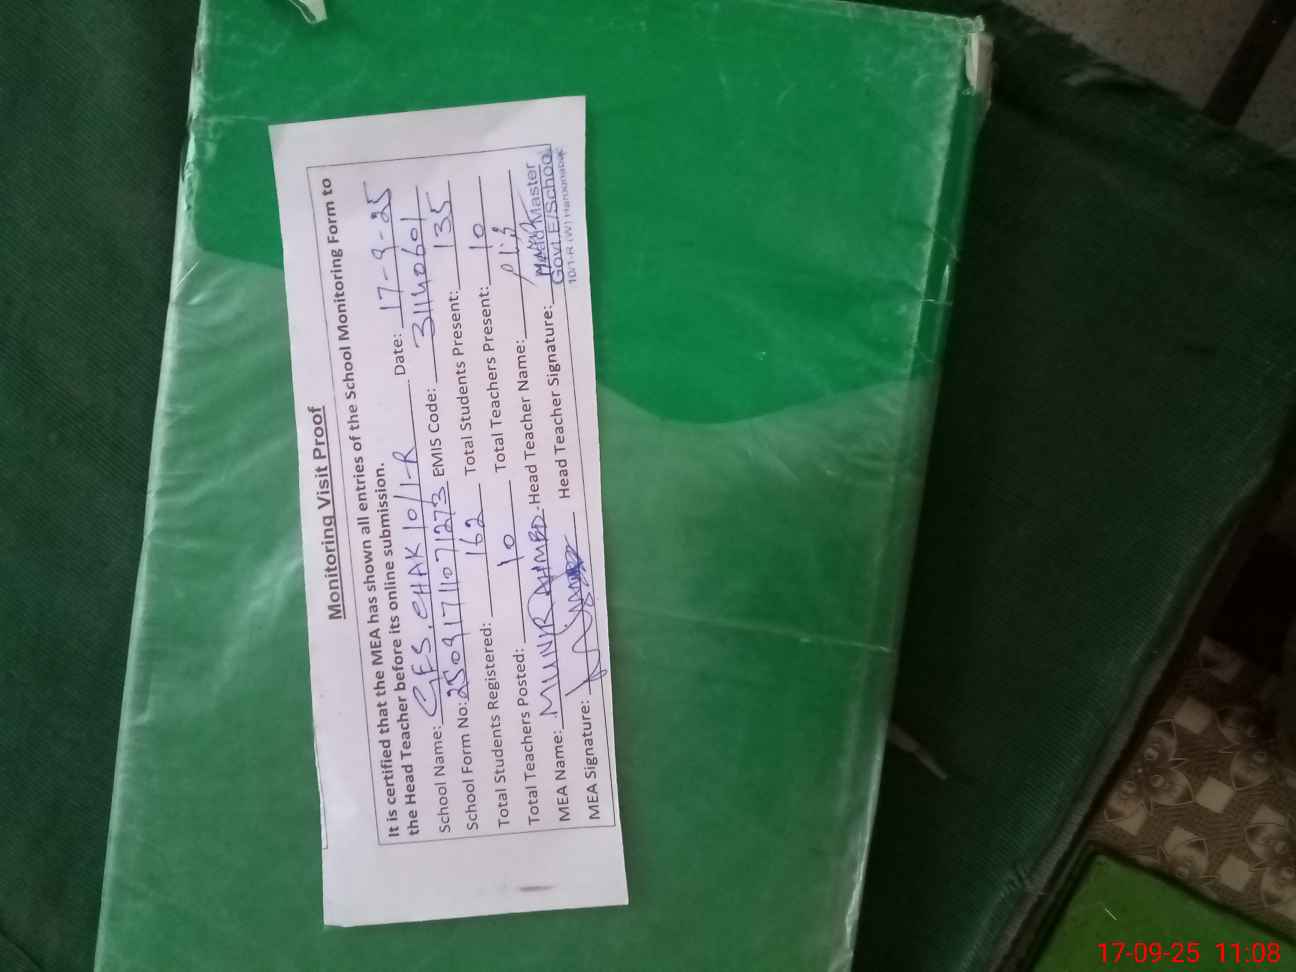 Monitoring Visit Proof
It is certified that the MEA has shown all entries of the School Monitoring Form to
the Head Teacher before its online submission.
School Name: GES. CHAK 10/1-R Date: 17-9-25
School Form No: 25091711071273 EMIS Code: 31140601
Total Students Registered: 162 Total Students Present: 135
Total Teachers Posted: 10 Total Teachers Present: 10
MEA Name: MUNIR AHMED Head Teacher Name:
MEA Signature: Head Teacher Signature:
Head Master
Govt.E/School
10/1-R (W) Haroonabad
17-09-25 11:08